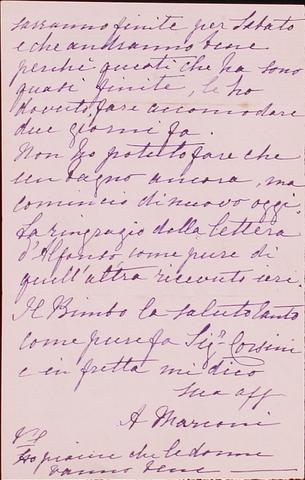 saranno finite per Sabato
e che andranno bene
perchè questi che ha sono
quasi finite, le ho
dovuto fare accomodare
due giorni fa.
Non ho potuto fare che
un bagno ancora, ma
comincio di nuovo oggi.
La ringrazio della lettera
d'Alfonso, come pure di
quell'altra ricevuta ieri.
Il Bimbo la saluta tanto
come pure fa Sigra Corsini
e in fretta mi dico
sua aff
A Marconi
PS
Ho piacere che le donne
vanno bene